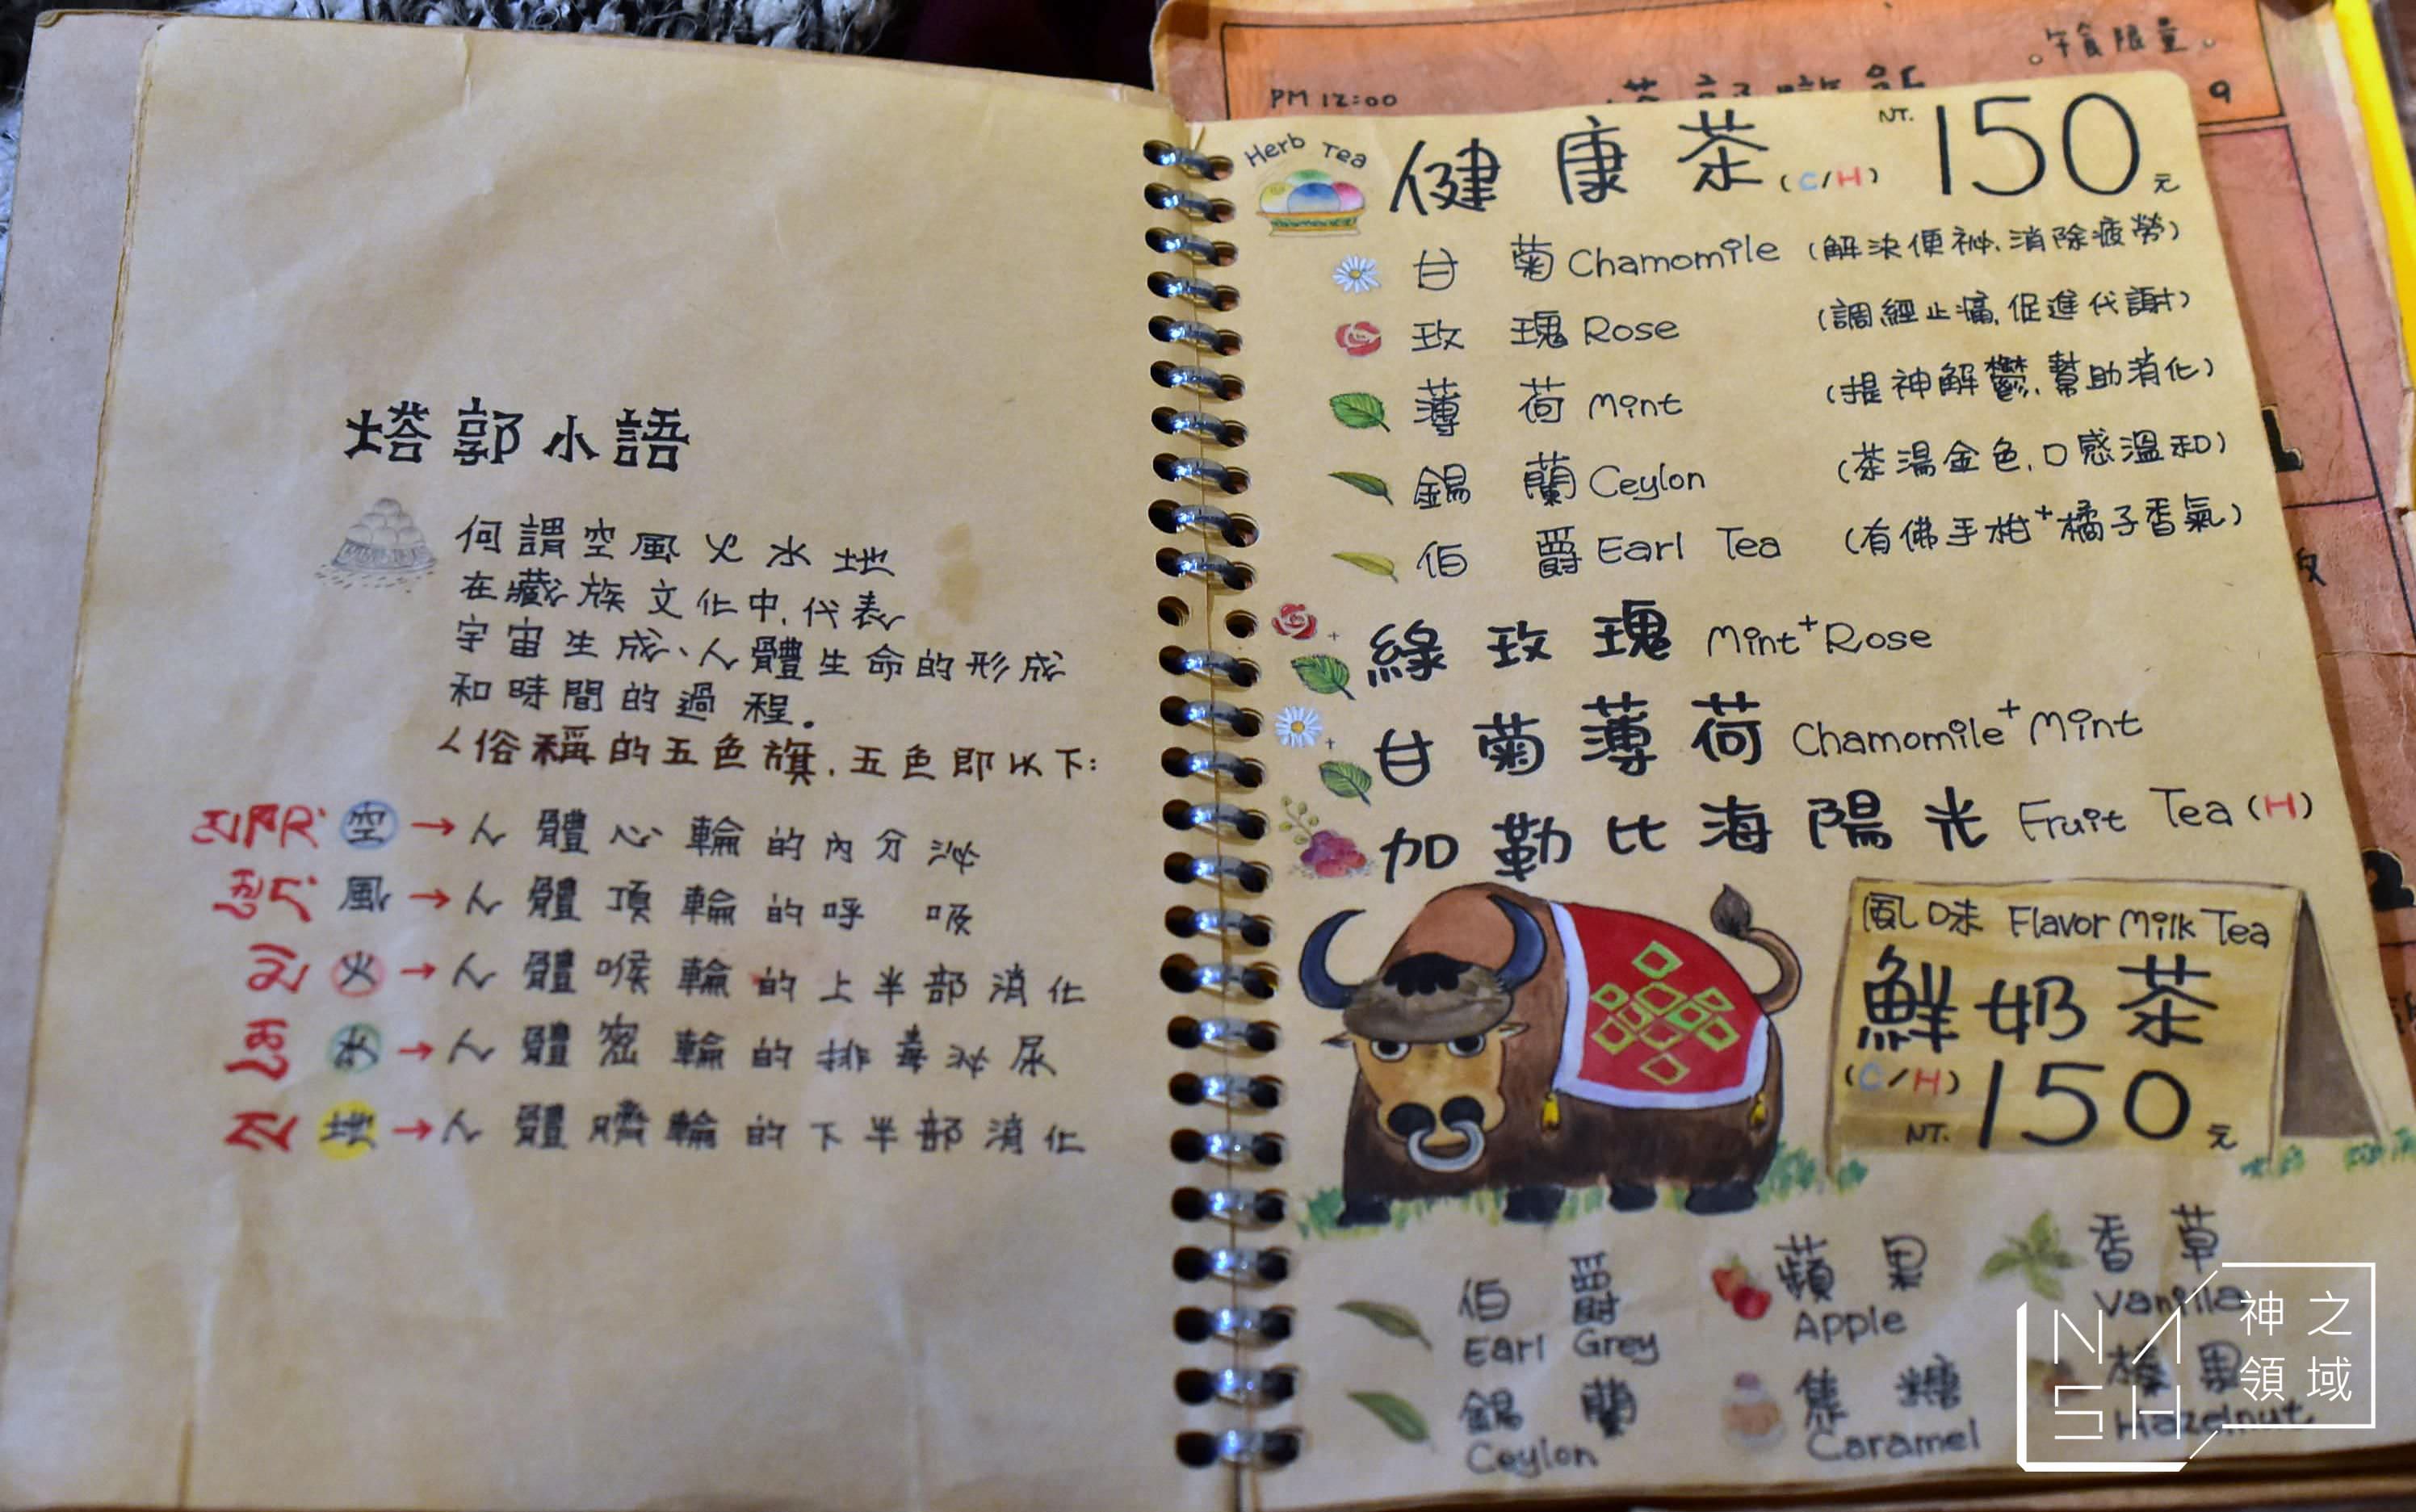 塔郭小語
何謂空風火水地
在藏族文化中,代表
宇宙生成、人體生命的形成
和時間的過程。
人俗稱的五色旗,五色即以下:
空→人體心輪的內分泌
風→人體頂輪的呼 吸
火→人體喉輪的上半部消化
水→人體密輪的排毒泌尿
地→人體臍輪的下半部消化
PM 12:00
午食限量
9
Herb Tea
健康茶(C/H) NT.150元
甘 菊 Chamomile (解決便祕,消除疲勞)
玫 瑰 Rose (調經止痛,促進代謝)
薄 荷 Mint (提神解鬱,幫助消化)
錫 蘭 Ceylon (茶湯金色,口感溫和)
伯 爵 Earl Tea (有佛手柑+橘子香氣)
綠玫瑰 Mint+Rose
甘菊薄荷 Chamomile+Mint
加勒比海陽光 Fruit Tea (H)
風味 Flavor Milk Tea
鮮奶茶
(C/H)
NT.150元
伯 爵
Earl Grey
蘋 果
Apple
香 草
Vanilla
錫 蘭
Ceylon
焦 糖
Caramel
榛 果
Hazelnut
NASH
神之
領域